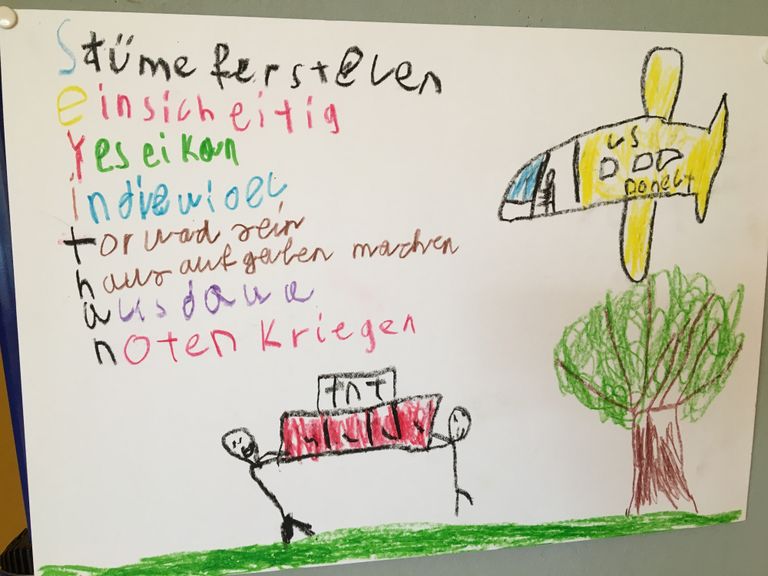 Stüme fersteLen
einsicheitig
Yes ei kan
indiewioel
torwad sein
hausaufgaben machen
ausdaua
noten kriegen
US
DODO
Donelt
tnt